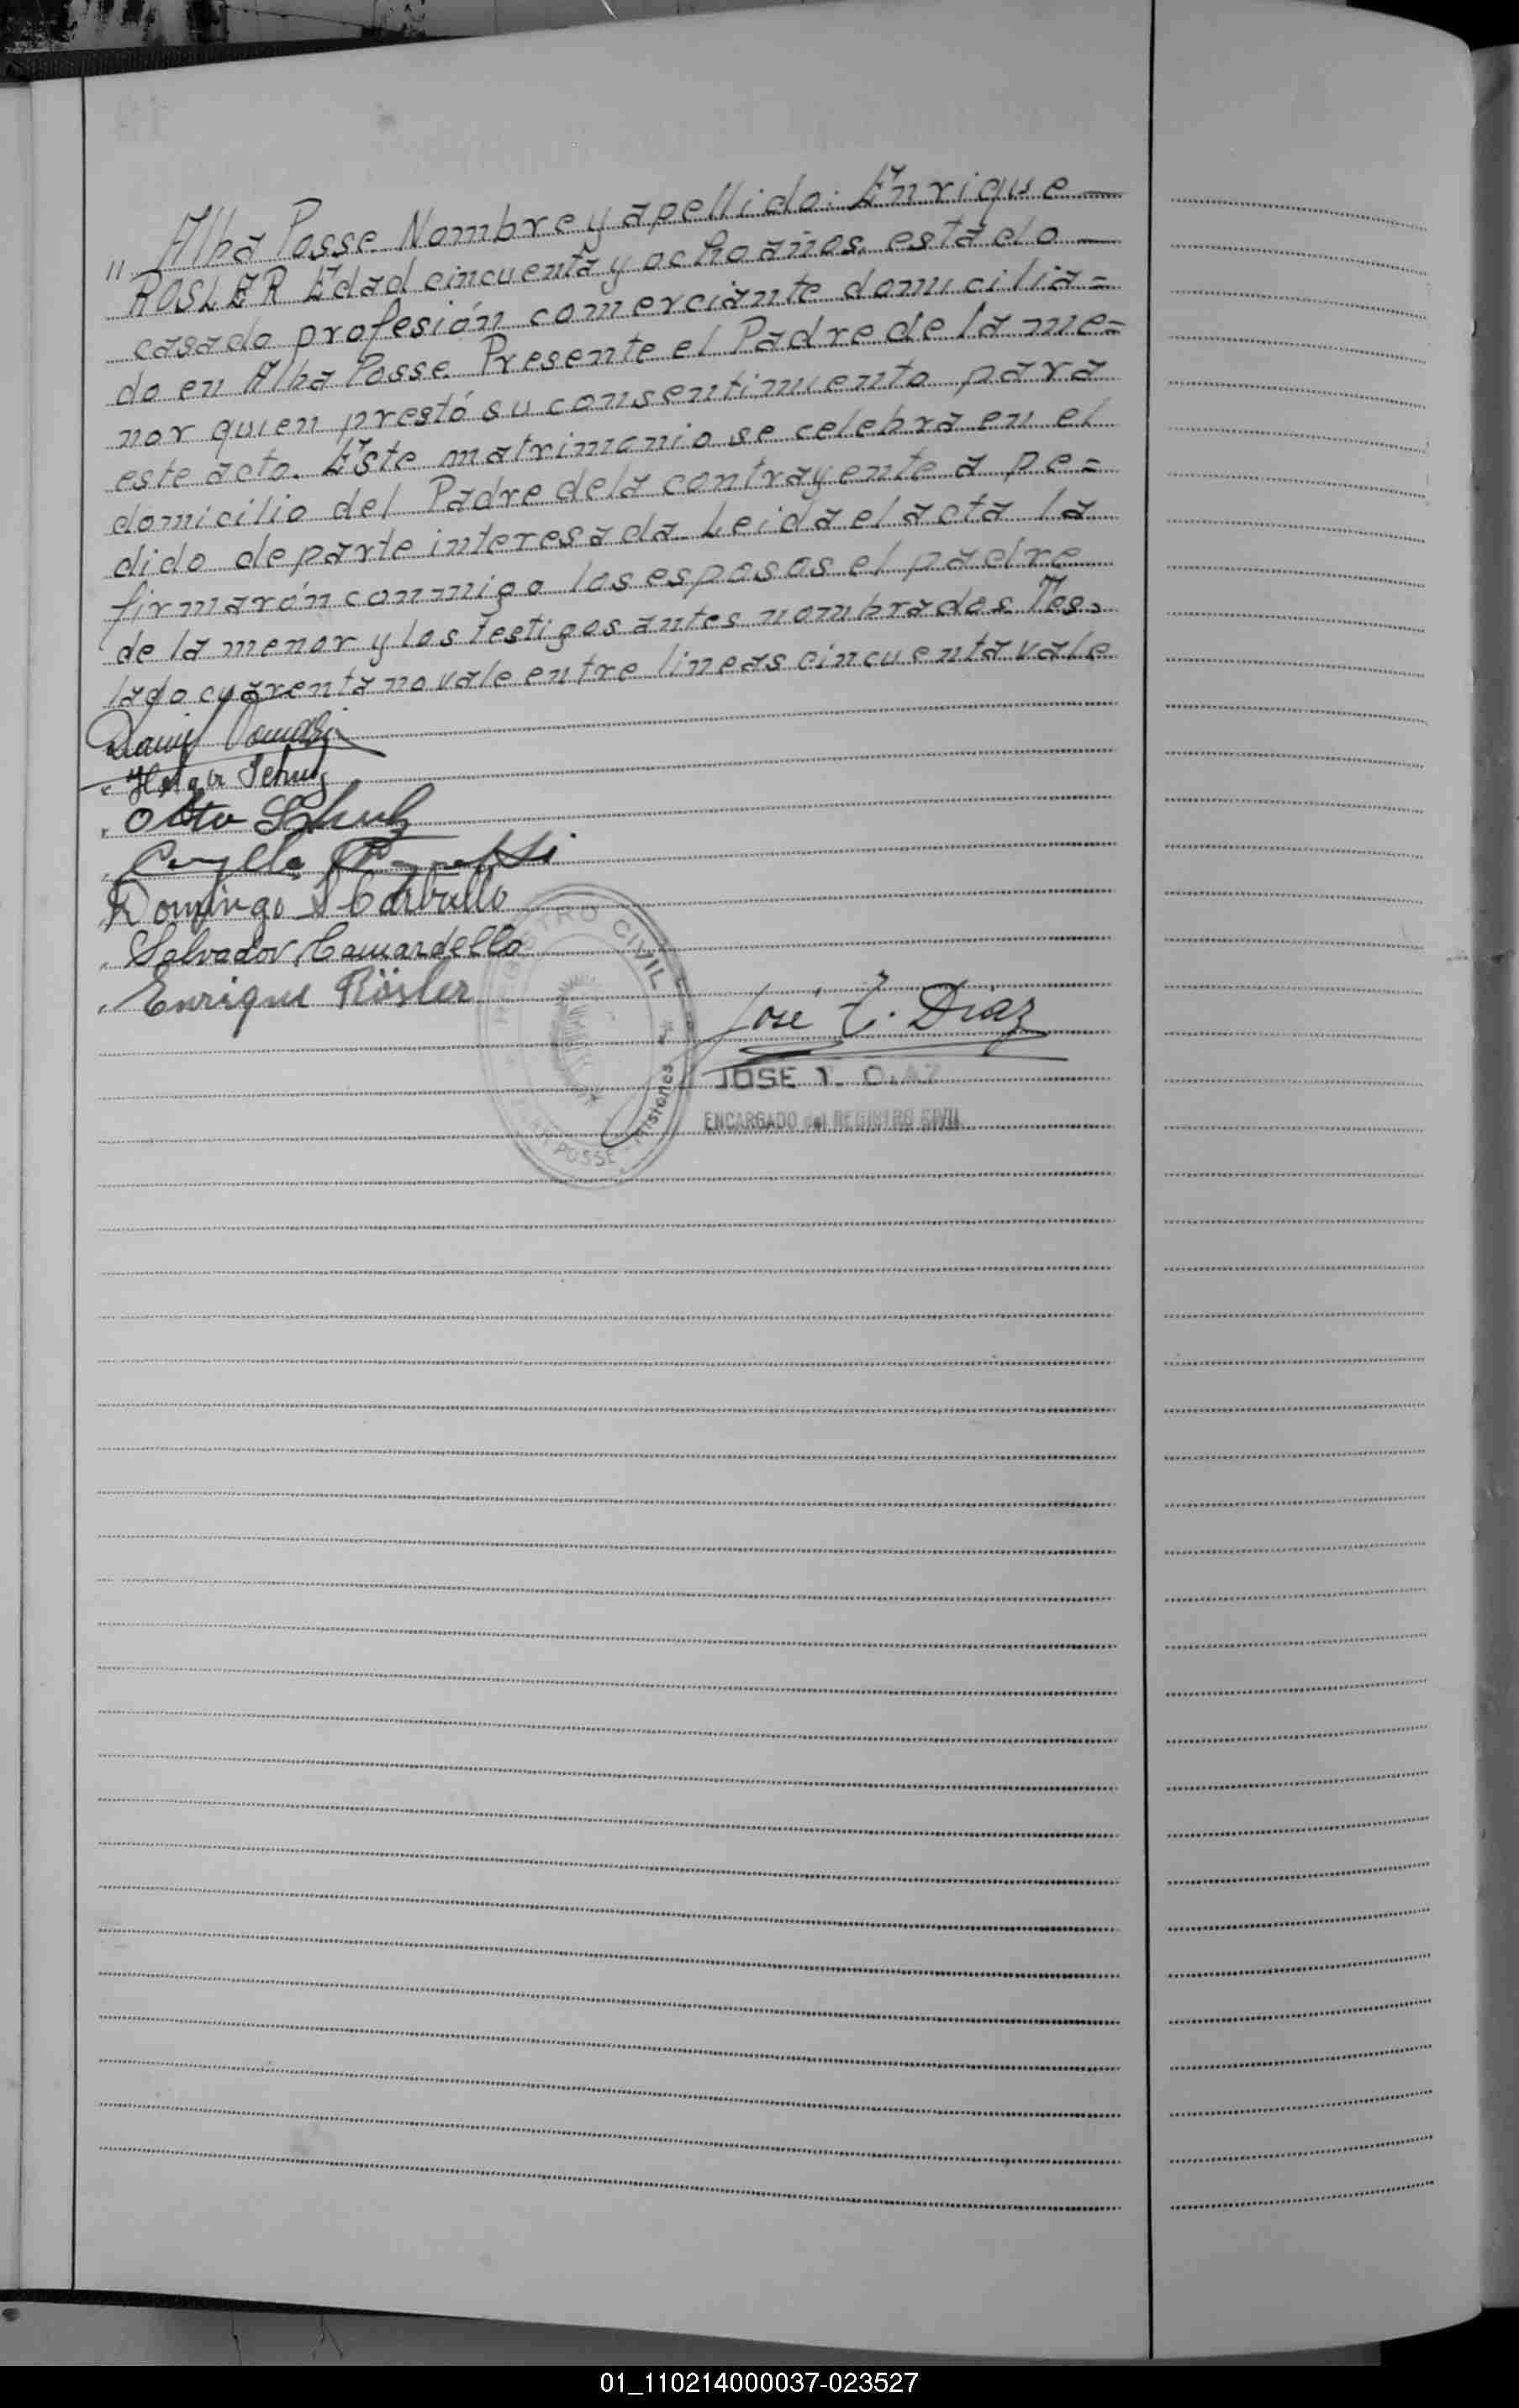 " Alba Posse. Nombre y apellido: Enrique —
ROSLER Edad cincuenta y ocho años, estado —
casado profesión comerciante domicilia=
do en Alba Posse. Presente el Padre de la me=
nor quien prestó su consentimiento para
este acto. Este matrimonio se celebra en el
domicilio del Padre dela contrayente a pe=
dido de parte interesada. Leida el acta la
firmarón conmigo los esposos el padre
de la menor y los testigos antes nombrados. Tes=
lado cuarenta no vale entre lineas cincuenta vale
Helga Schulz
Otto Schulz
Domingo S Carballo
Salvador Camardello
Enrique Rösler
REGISTRO CIVIL
POSSE - Misiones
José T. Diaz
JOSE T. DIAZ
ENCARGADO del REGISTRO CIVIL
01_110214000037-023527